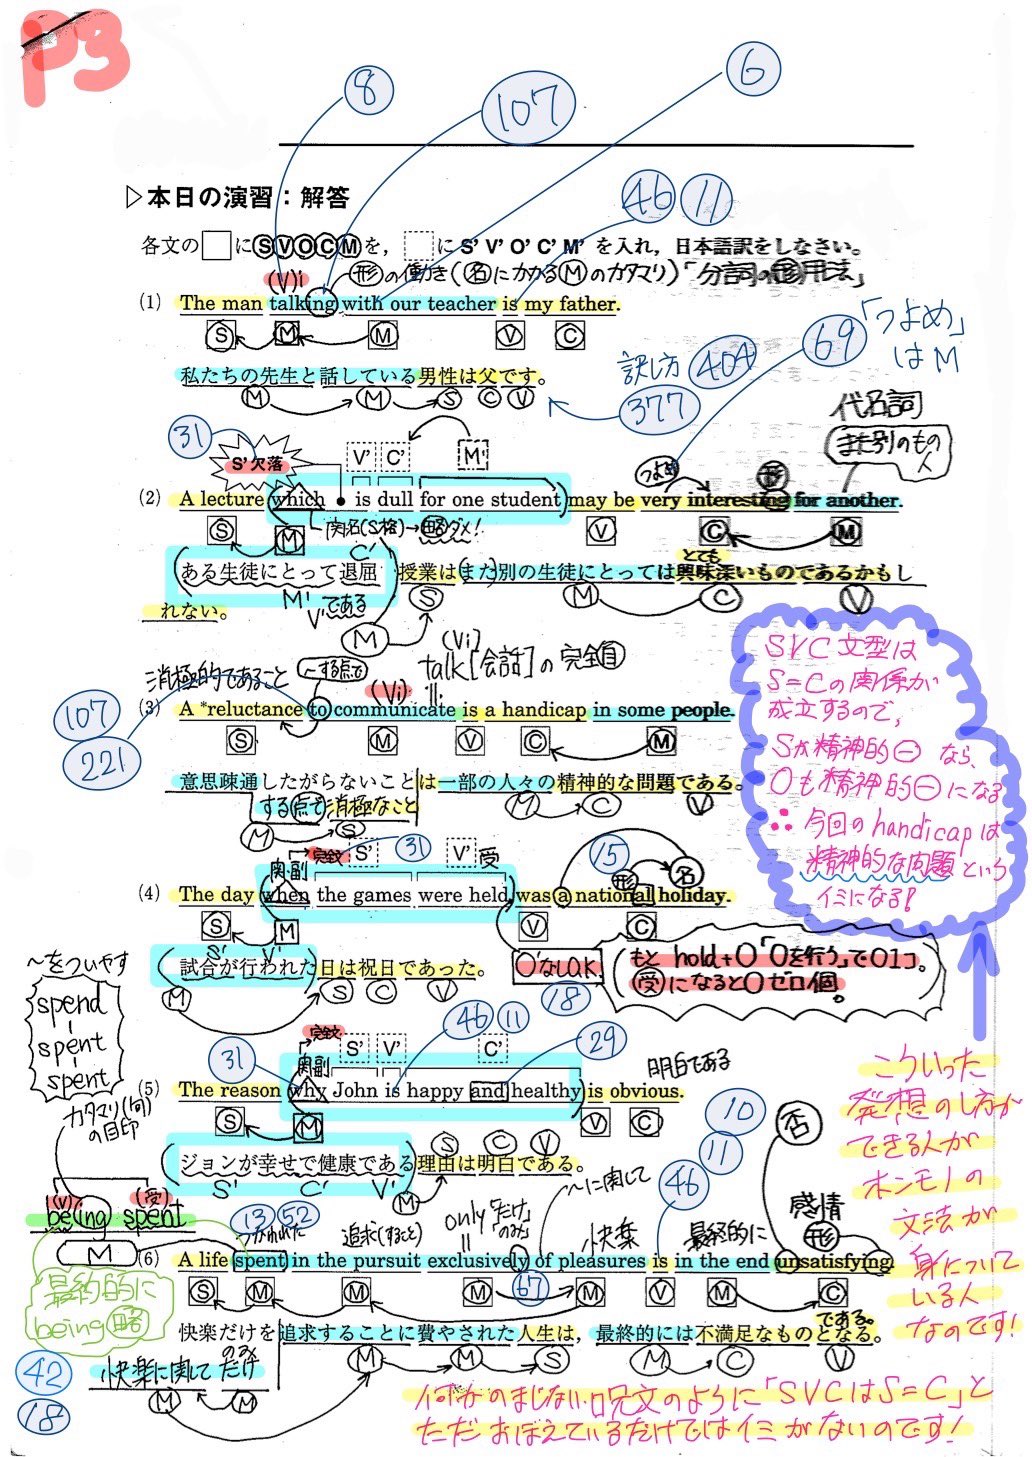 P3
8
107
6
▷本日の演習：解答
46 11
各文の□にⓈⓋⓄⒸⓂを，□に S' V' O' C' M' を入れ，日本語訳をしなさい。
(V)i 形の働き(名にかかるMのカタマリ)「分詞の形用法」
(1) The man talking with our teacher is my father.
S M M V C
69 「つよめ」はM
私たちの先生と話している男性は父です。
M M S C V
訳し方 404
377
代名詞
また別のもの人
31
S'欠落 V' C' M'
つよめ 形
(2) A lecture which • is dull for one student may be very interesting for another.
S M V C M
関名(S格)→略ダメ!
C' とても
ある生徒にとって退屈 授業は(また)別の生徒にとっては興味深いものであるかもし
M' V'である S M C V
れない。
M
(Vi)
talk[会話]の完全自
消極的であること 〜する点で
(Vi)
107
221
(3) A *reluctance to communicate is a handicap in some people.
S M V C M
意思疎通したがらないことは一部の人々の精神的な問題である。
する点で消極なこと M C V
M S
SVC文型は
S=Cの関係が
成立するので,
Sが精神的⊖なら、
Oも精神的⊖になる
∴今回のhandicapは
精神的な問題という
イミになる!
関・副 完全文 S' 31 V' 受
15 形 名
(4) The day when the games were held was a national holiday.
S M V C
S' V'
試合が行われた日は祝日であった。
M S C V
O'なしOK
もと hold+O「Oを行う」でO1コ。
受になるとOゼロ個。
18
〜をついやす
spend
spent
spent
完全文
関副 S' V' C'
31 46 11 29
明白である
(5) The reason why John is happy and healthy is obvious.
S M V C
S C V
ジョンが幸せで健康である理由は明白である。
S' C' V' M
カタマリ(句)の目印
(V) (受)
being spent
M
最終的に
being略
こういった
発想のし方が
できる人が
ホンモノの
文法が
身について
いる人
なのです!
10
11
46
否
感情
形
13 52
つかわれた 追求(すること) only「だけ」のみ 〜に関して 快楽 最終的に
(6) A life spent in the pursuit exclusively of pleasures is in the end unsatisfying.
S M M M 67 M V M C
である。
快楽だけを追求することに費やされた人生は，最終的には不満足なものとなる。
M M S M C V
快楽に関してだけ
のみ
M M
42
18
何かのまじない呪文のように「SVCはS=C」と
ただおぼえているだけではイミがないのです!